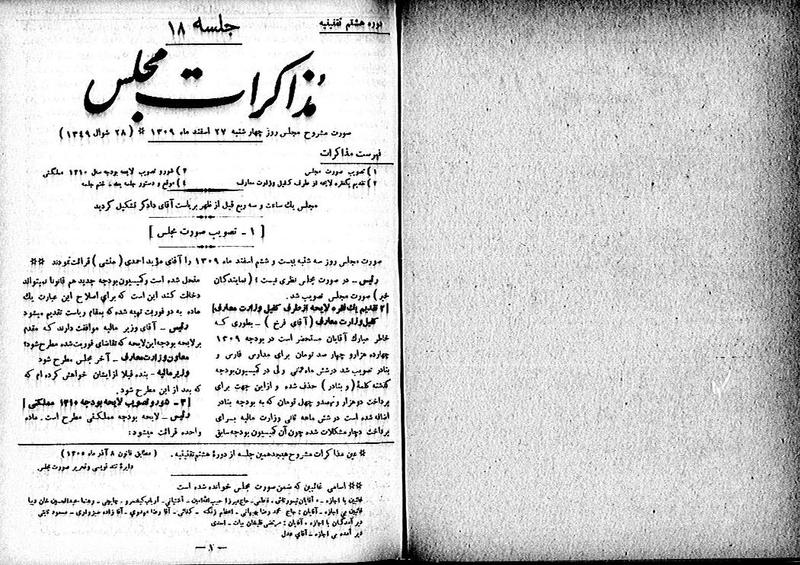 دوره هشتم تقنینیه
جلسه ۱۸
مذاکرات مجلس
صورت مشروح مجلس روز چهار شنبه ۲۷ اسفند ماه ۱۳۰۹ * (۲۸ شوال ۱۳۴۹)
فهرست مذاکرات
۱) تصویب صورت مجلس
۲) تقدیم یکفقره لایحه از طرف کفیل وزارت معارف
۳) شور و تصویب لایحه بودجه سال ۱۳۱۰ مملکتی
۴) موقع و دستور جلسه بعد ـ ختم جلسه
مجلس یک ساعت و سه ربع قبل از ظهر بریاست آقای دادگر تشکیل گردید
[ ۱ ـ تصویب صورت مجلس ]
صورت مجلس روز سه شنبه بیست و ششم اسفند ماه ۱۳۰۹ را آقای مؤید احمدی (منشی) قرائت نمودند **
رئیس ـ در صورت مجلس نظری نیست؟ (نمایندگان
خیر) صورت مجلس تصویب شد.
[۲ تقدیم یک فقره لایحه از طرف کفیل وزارت معارف]
کفیل وزارت معارف (آقای فرخ) ـ بطوری که
خاطر مبارک آقایان مستحضر است در بودجه ۱۳۰۹
چهارده هزار و چهار صد تومان برای مدارس فارس و
بنادر تصویب شد در شش ماهه ثانی ولی در کمیسیون بودجه
گذشته کلمهٔ (و بنادر) حذف شده و از این جهت برای
پرداخت دو هزار و نیصدو چهل تومان که به بودجه بنادر
اضافه شده است در شش ماهه ثانی وزارت مالیه برای
پرداخت دچار مشکلات شده چون آن کمیسیون بودجه سابق
منحل شده است و کمیسیون بودجه جدید هم قانونا نمیتواند
دخالت کند این است که برای اصلاح این عبارت یک
ماده به دو فوریت تهیه شده که بمقام ریاست تقدیم میشود
رئیس ـ آقای وزیر مالیه موافقت دارند که مقدم
بر لایحه بودجه این لایحه که تقاضای فوریت شده مطرح شود؟
معاون وزارت معارف ـ آخر مجلس مطرح شود
وزیر مالیه ـ بنده قبلا از ایشان خواهش کرده ام که
که بعد از این مطرح شود.
[۳ ـ شور و تصویب لایحه بودجه ۱۳۱۰ مملکتی]
رئیس ـ لایحه بودجه مملکتی مطرح است. ماده
واحده قرائت میشود:
* عین مذاکرات مشروح هیجدهمین جلسه از دورهٔ هشتم تقنینیه. (مطابق قانون ۸ آذر ماه ۱۳۰۵)
دایرهٔ تند نویسی و تحریر صورت مجلس
** اسامی غائبین که ضمن صورت مجلس خوانده شده است
غائبین با اجازه ـ آقایان تیمورتاش ـ حاج میرزا حبیب الله امین ـ آشتیانی ـ ارباب کیخسرو ـ
غائبین بی اجازه ـ آقایان: حاج محمد رضا بهبهانی ـ اعظم زنگنه ـ کفائی ـ آقا رضا مهدوی ـ آقا زاده سبزواری ـ مسعود ثابتی
دیر آمدگان با اجازه ـ آقایان: مرتضی قلیخان بیات ـ اسدی
دیر آمده بی اجازه ـ آقای عدل
ـ ۱ ـ